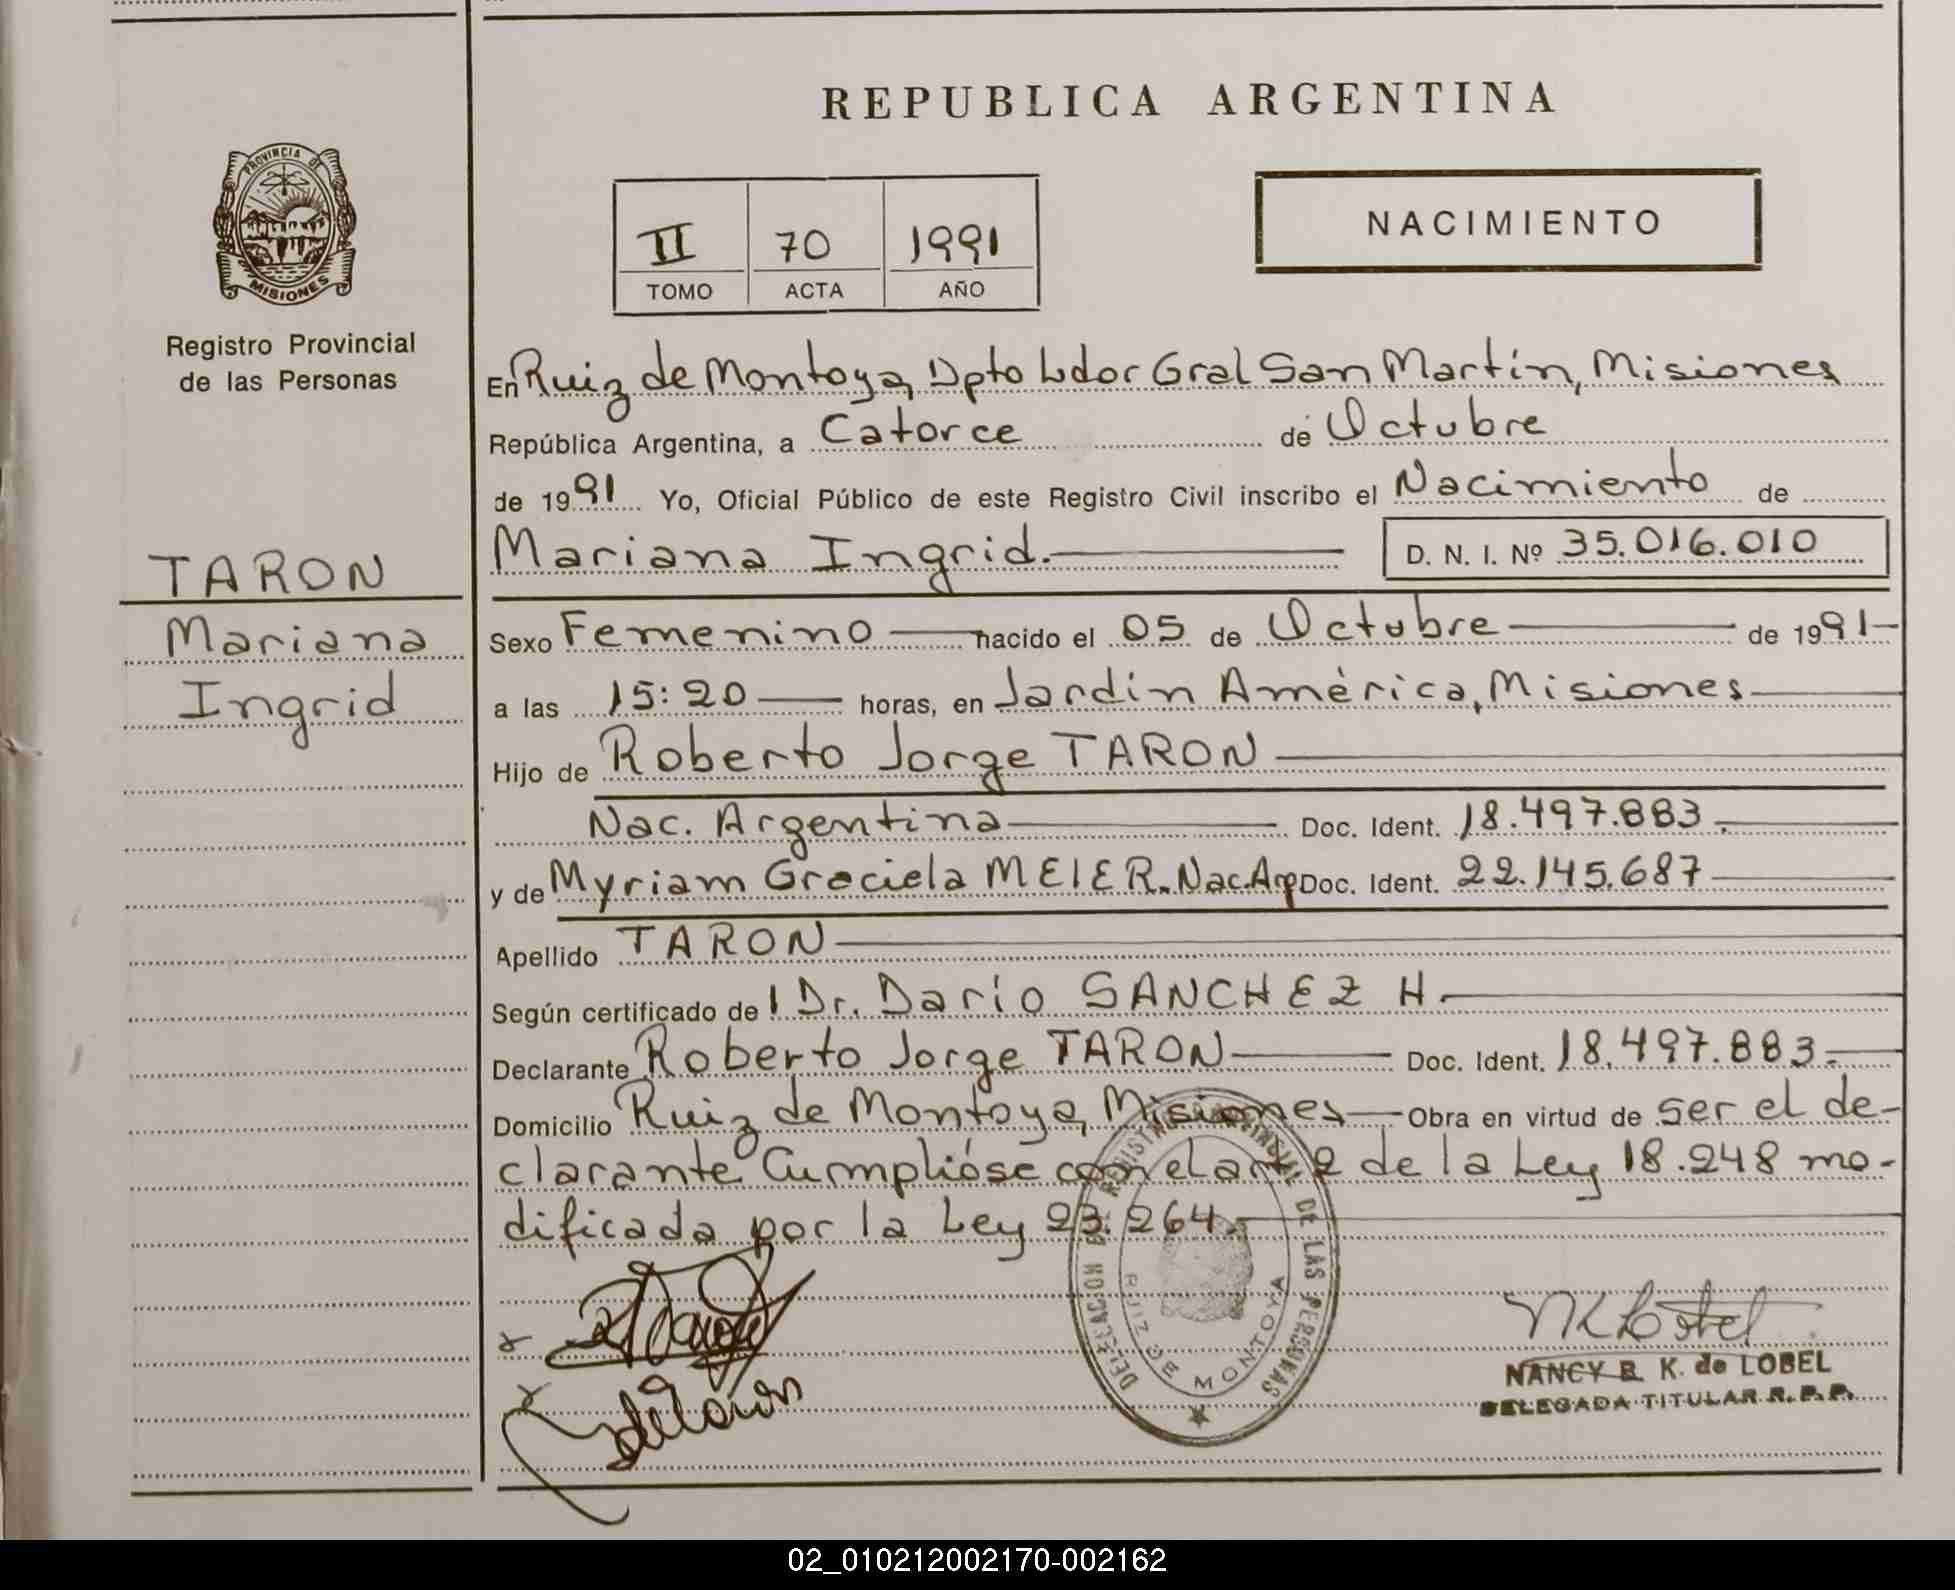 REPUBLICA ARGENTINA
PROVINCIA DE
MISIONES
Registro Provincial
de las Personas
II 70 1991
TOMO ACTA AÑO
NACIMIENTO
En Ruiz de Montoya, Dpto Ldor Gral San Martín, Misiones
República Argentina, a Catorce de Octubre
de 1991 Yo, Oficial Público de este Registro Civil inscribo el Nacimiento de
Mariana Ingrid. D. N. I. Nº 35.016.010
TARON
Mariana
Ingrid
Sexo Femenino nacido el 05 de Octubre de 1991
a las 15:20 horas, en Jardín América, Misiones
Hijo de Roberto Jorge TARON
Nac. Argentina Doc. Ident. 18.497.883.
y de Myriam Graciela MEIER. Nac. Arg Doc. Ident. 22.145.687
Apellido TARON
Según certificado de l Dr. Darío SANCHEZ H.
Declarante Roberto Jorge TARON Doc. Ident. 18.497.883.
Domicilio Ruiz de Montoya, Misiones Obra en virtud de ser el de-
clarante Cumplióse con el art 2 de la Ley 18.248 mo-
dificada por la Ley 23.264.
DELEGACION DEL REGISTRO PROVINCIAL DE LAS PERSONAS
RUIZ DE MONTOYA
NANCY B. K. de LOBEL
DELEGADA TITULAR R. P. P.
02_010212002170-002162